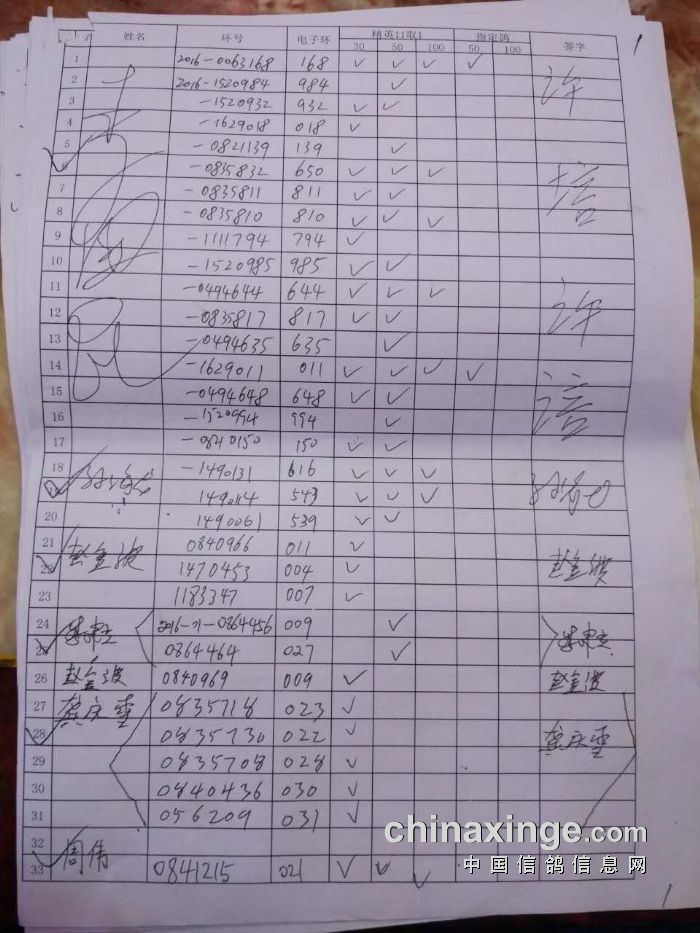 姓名 环号 电子环 精英11取1 指定鸽 签字
30 50 100 50 100
1 2016-0063168 168 ✓ ✓ ✓ ✓
2 2016-1520984 984 ✓ 许
3 -1520932 932 ✓ ✓
4 -1629018 018 ✓
5 -0821139 139 ✓
6 -0835832 650 ✓ ✓ ✓
7 -0835811 811 ✓ ✓
8 -0835810 810 ✓ ✓ ✓
9 -1111794 794 ✓
10 -1520985 985 ✓ ✓
11 -0494644 644 ✓ ✓ ✓
12 -0835817 817 ✓ ✓ 许
13 -0494635 635 ✓
14 -1629011 011 ✓ ✓ ✓ ✓
15 -0494648 648 ✓ ✓
16 -1520994 994 ✓
17 -0840150 150 ✓ ✓
18 -1490131 616 ✓ ✓ ✓
1490114 543 ✓ ✓ ✓
20 1490061 539 ✓ ✓
21 0840966 011 ✓
22 赵金波 1470453 004 ✓ 赵金波
23 1183347 007 ✓
24 2016-21-0864456 009 ✓
25 0864464 027 ✓
26 赵金波 0840969 009 ✓ 赵金波
27 龚庆雪 0835718 023 ✓
28 0835730 022 ✓ 龚庆雪
29 0835708 028 ✓
30 0840436 030 ✓
31 056209 031 ✓
32
33 周伟 0841215 021 ✓ ✓ ✓
chinaxinge.com
中国信鸽信息网